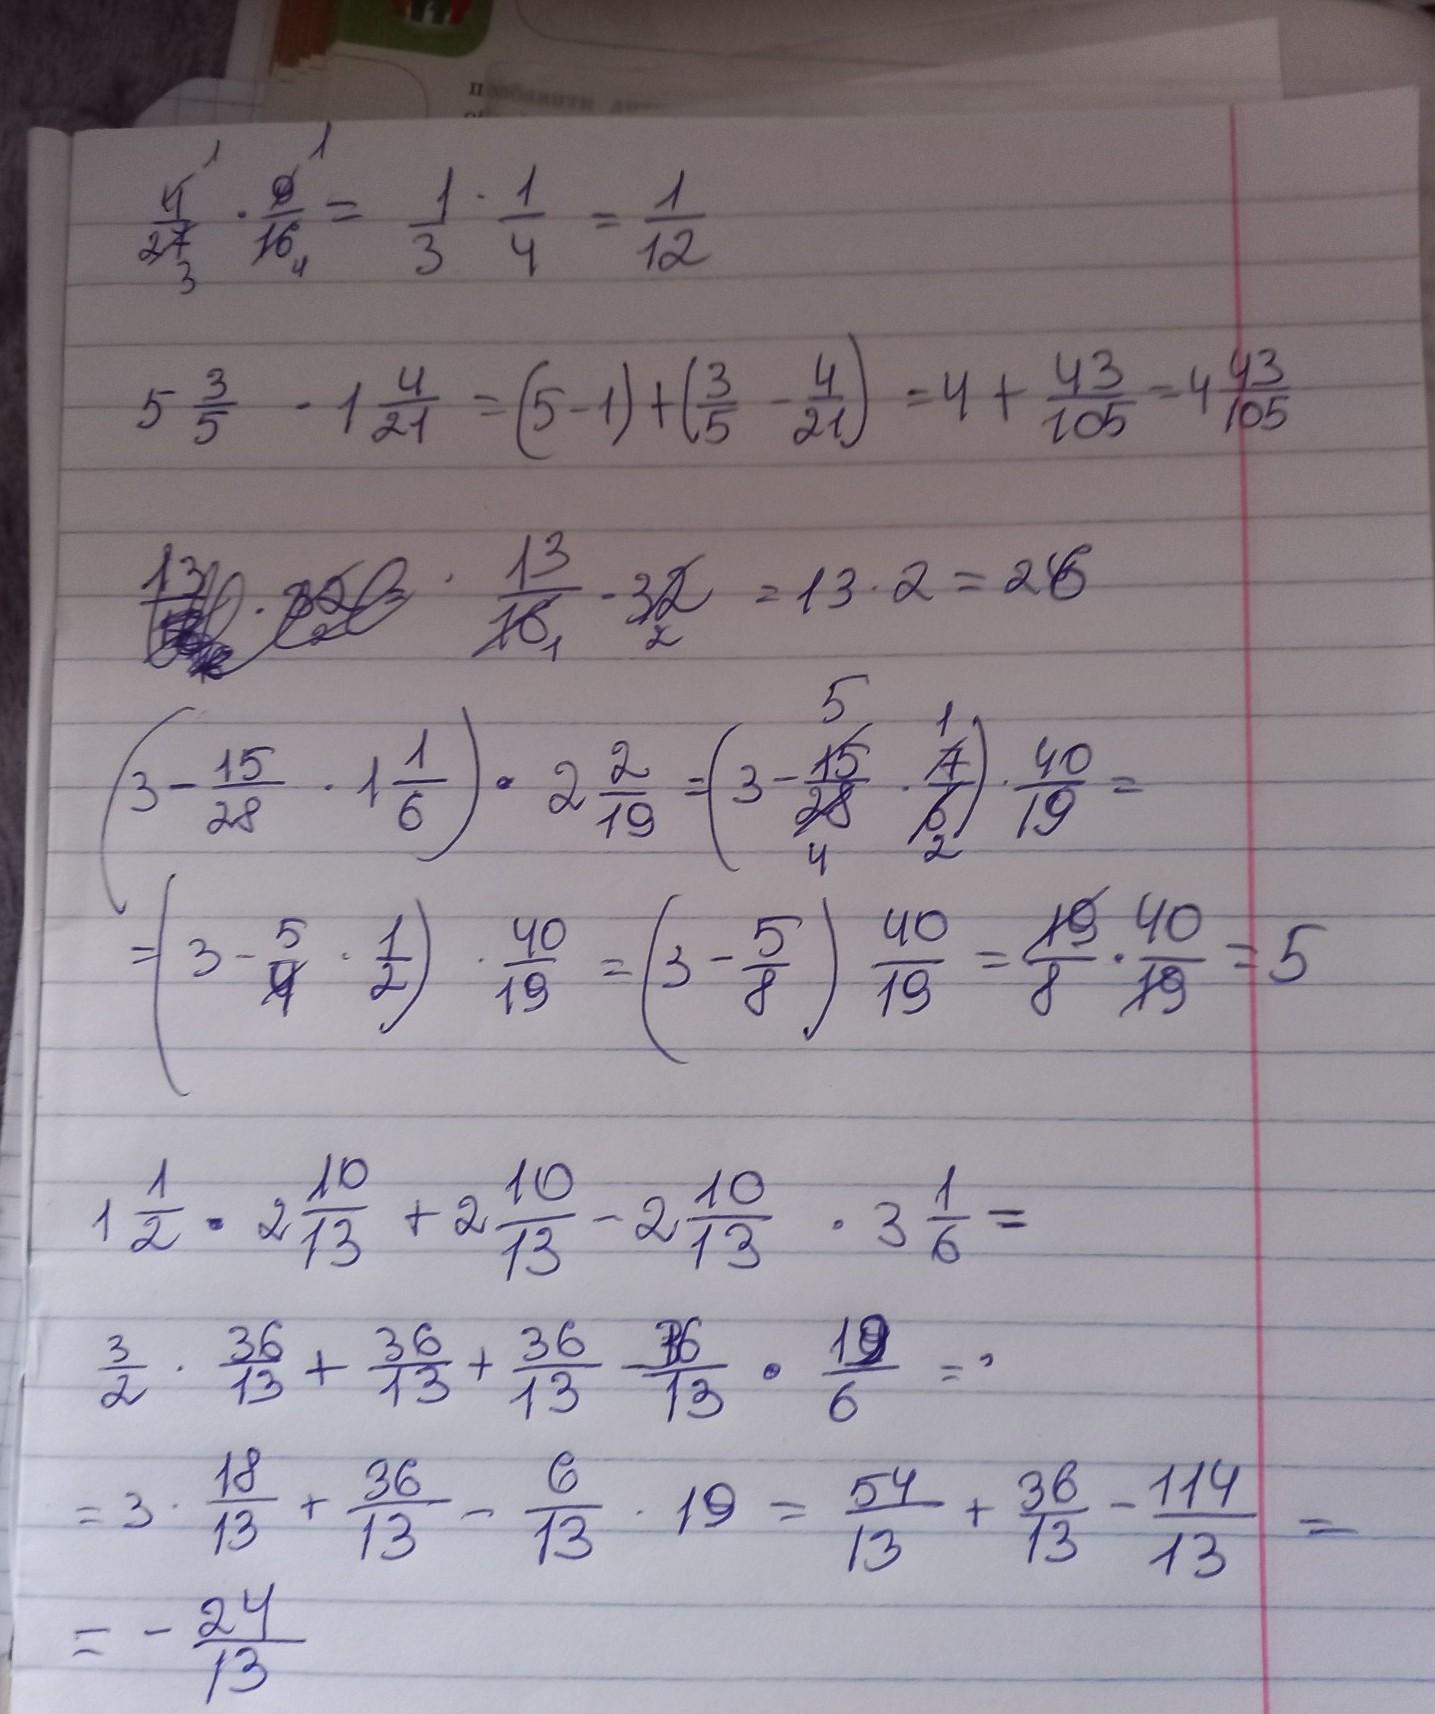 4/27 · 9/16 = 1/3 · 1/4 = 1/12
5 3/5 - 1 4/21 = (5 - 1) + (3/5 - 4/21) = 4 + 43/105 = 4 43/105
13/16 · 32 = 13 · 2 = 26
(3 - 15/28 · 1 1/6) · 2 2/19 = (3 - 15/28 · 7/6) · 40/19 =
= (3 - 5/4 · 1/2) · 40/19 = (3 - 5/8) 40/19 = 19/8 · 40/19 = 5
1 1/2 · 2 10/13 + 2 10/13 - 2 10/13 · 3 1/6 =
3/2 · 36/13 + 36/13 + 36/13 - 36/13 · 19/6 =
= 3 · 18/13 + 36/13 - 6/13 · 19 = 54/13 + 36/13 - 114/13 =
= - 24/13